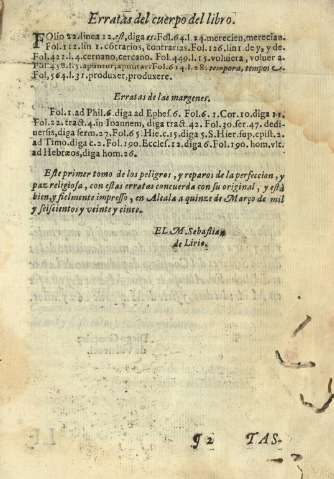 Erratas del cuerpo del libro.
FOlio 22. linea 12. est, diga es. Fol. 64. l. 24. merecien, merecian.
Fol. 112. lin 1. cõtrarios, contrarias. Fol. 126. lin 1. de y, y de.
Fol. 421. l. 4. cernano, cercano. Fol. 449. l. 15. voluera, voluer a.
Fol. 458. l. 5. apuntar, Fol. 514. l. 28. tempora, tempos
Fol. 564. l. 31. produxer, produxere.
Erratas de las margenes.
Fol. 1. ad Phil. 6. diga ad Ephes. 6. Fol. 6. 1. Cor. 10. diga 11.
Fol. 22. tract. 4. in Ioannem, diga tract 42. Fol. 30. ser. 47. dedi-
uersis, diga serm. 27. Fol. 65 Hie. c. 15. diga 5. S. Hier. sup. epist. 2.
ad Timo. diga c. 2. Fol. 190. Eccles. 12. diga 6. Fol. 190. hom. vlt.
ad Hebræos, diga hom. 26.
Este primer tomo de los peligros, y reparos de la perfeccion, y
paz religiosa, con estas erratas concuerda con su original, y està
bien, y fielmente impresso, en Alcala a quinze de Março de mil
y seiscientos y veinte y cinco.
EL M. Sebastian
de Lirio.
¶ 2 TAS-